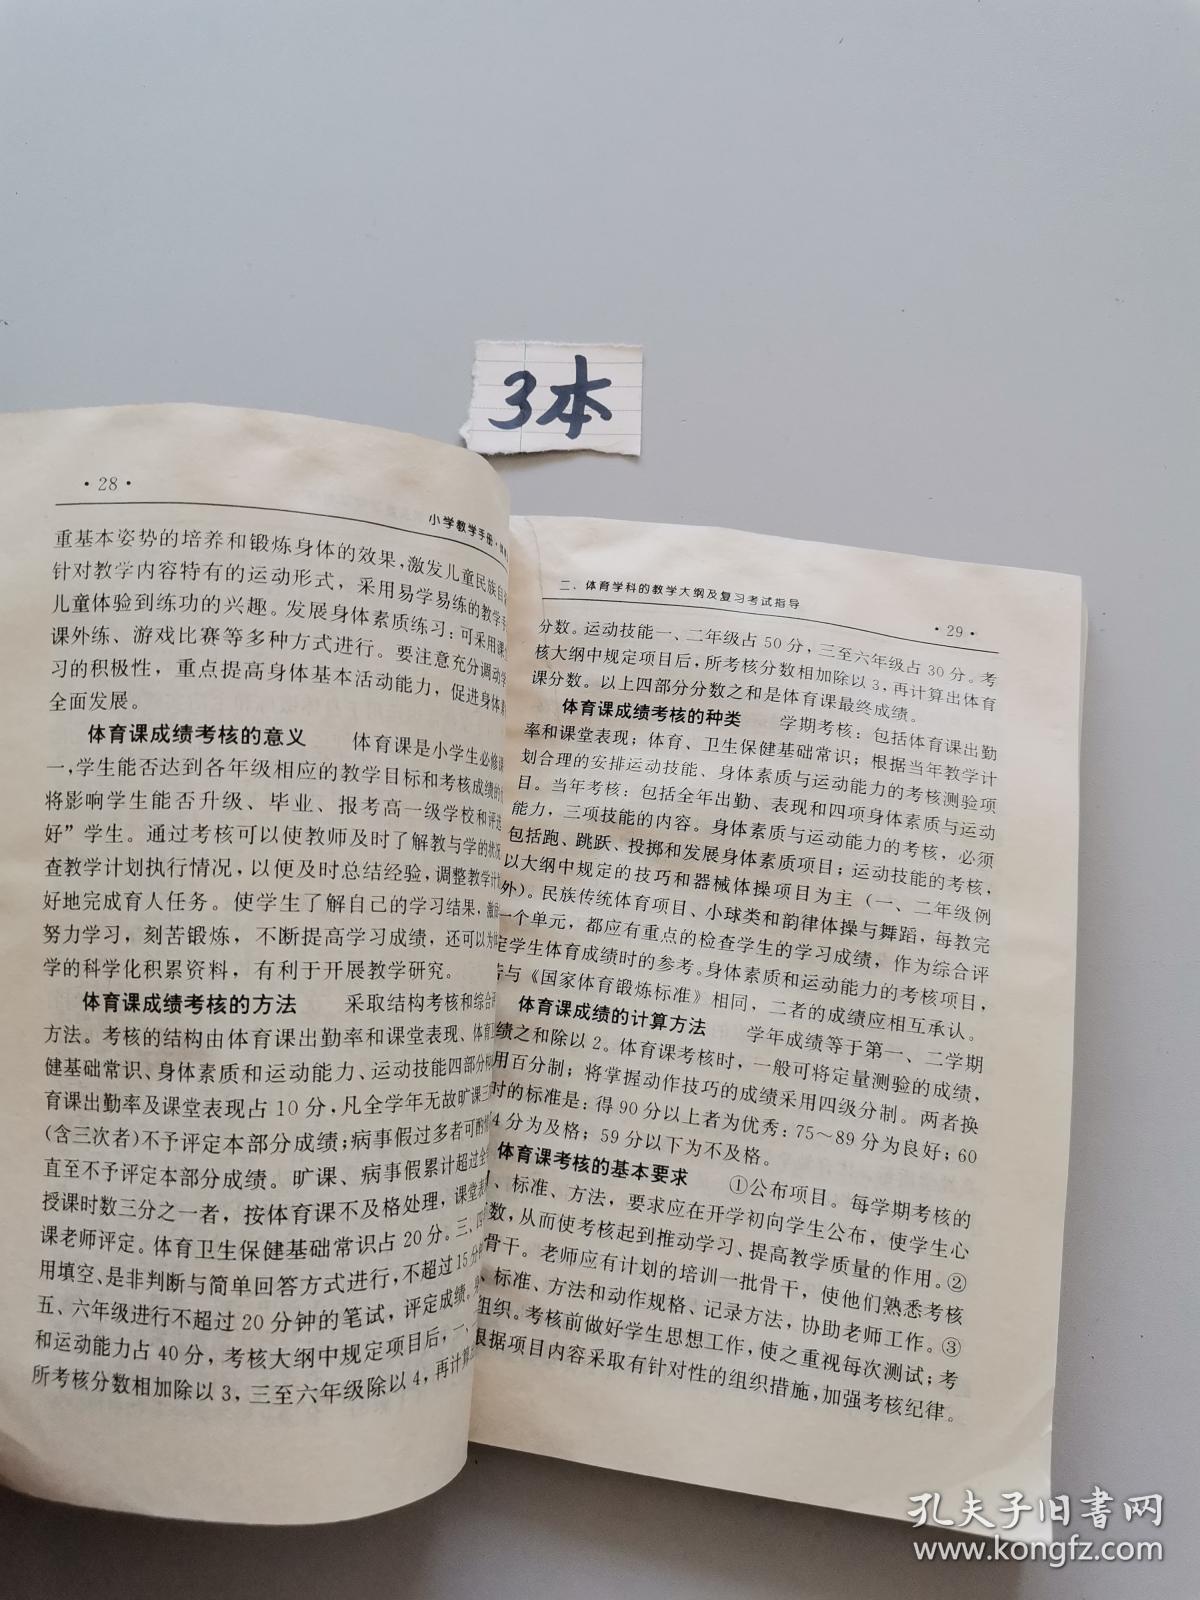 3本
·28·
小学教学手册·
重基本姿势的培养和锻炼身体的效果,激发儿童民族自
针对教学内容特有的运动形式,采用易学易练的教学手
儿童体验到练功的兴趣。发展身体素质练习:可采用课
课外练、游戏比赛等多种方式进行。要注意充分调动学
习的积极性,重点提高身体基本活动能力,促进身体
全面发展。
体育课成绩考核的意义 体育课是小学生必修课
一,学生能否达到各年级相应的教学目标和考核成绩的
将影响学生能否升级、毕业、报考高一级学校和评选
好”学生。通过考核可以使教师及时了解教与学的状况
查教学计划执行情况,以便及时总结经验,调整教学计
好地完成育人任务。使学生了解自己的学习结果,激励
努力学习,刻苦锻炼,不断提高学习成绩,还可以为
学的科学化积累资料,有利于开展教学研究。
体育课成绩考核的方法 采取结构考核和综合评
方法。考核的结构由体育课出勤率和课堂表现、体育卫
健基础常识、身体素质和运动能力、运动技能四部分构
育课出勤率及课堂表现占10分,凡全学年无故旷课三
(含三次者)不予评定本部分成绩;病事假过多者可酌
直至不予评定本部分成绩。旷课、病事假累计超过全
授课时数三分之一者,按体育课不及格处理,课堂表
课老师评定。体育卫生保健基础常识占20分。三、四
用填空、是非判断与简单回答方式进行,不超过15分钟
五、六年级进行不超过20分钟的笔试,评定成绩。
和运动能力占40分,考核大纲中规定项目后,一、
所考核分数相加除以3,三至六年级除以4,再计算
二、体育学科的教学大纲及复习考试指导
·29·
分数。运动技能一、二年级占50分,三至六年级占30分。考
核大纲中规定项目后,所考核分数相加除以3,再计算出体育
课分数。以上四部分分数之和是体育课最终成绩。
体育课成绩考核的种类 学期考核:包括体育课出勤
率和课堂表现;体育、卫生保健基础常识;根据当年教学计
划合理的安排运动技能、身体素质与运动能力的考核测验项
目。当年考核:包括全年出勤、表现和四项身体素质与运动
能力,三项技能的内容。身体素质与运动能力的考核,必须
包括跑、跳跃、投掷和发展身体素质项目;运动技能的考核,
以大纲中规定的技巧和器械体操项目为主(一、二年级例
外)。民族传统体育项目、小球类和韵律体操与舞蹈,每教完
一个单元,都应有重点的检查学生的学习成绩,作为综合评
定学生体育成绩时的参考。身体素质和运动能力的考核项目,
若与《国家体育锻炼标准》相同,二者的成绩应相互承认。
体育课成绩的计算方法 学年成绩等于第一、二学期
绩之和除以2。体育课考核时,一般可将定量测验的成绩,
用百分制;将掌握动作技巧的成绩采用四级分制。两者换
时的标准是:得90分以上者为优秀;75～89分为良好;60
4分为及格;59分以下为不及格。
体育课考核的基本要求 ①公布项目。每学期考核的
、标准、方法,要求应在开学初向学生公布,使学生心
数,从而使考核起到推动学习、提高教学质量的作用。②
骨干。老师应有计划的培训一批骨干,使他们熟悉考核
、标准、方法和动作规格、记录方法,协助老师工作。③
组织。考核前做好学生思想工作,使之重视每次测试;考
根据项目内容采取有针对性的组织措施,加强考核纪律。
孔夫子旧书网
www.kongfz.com